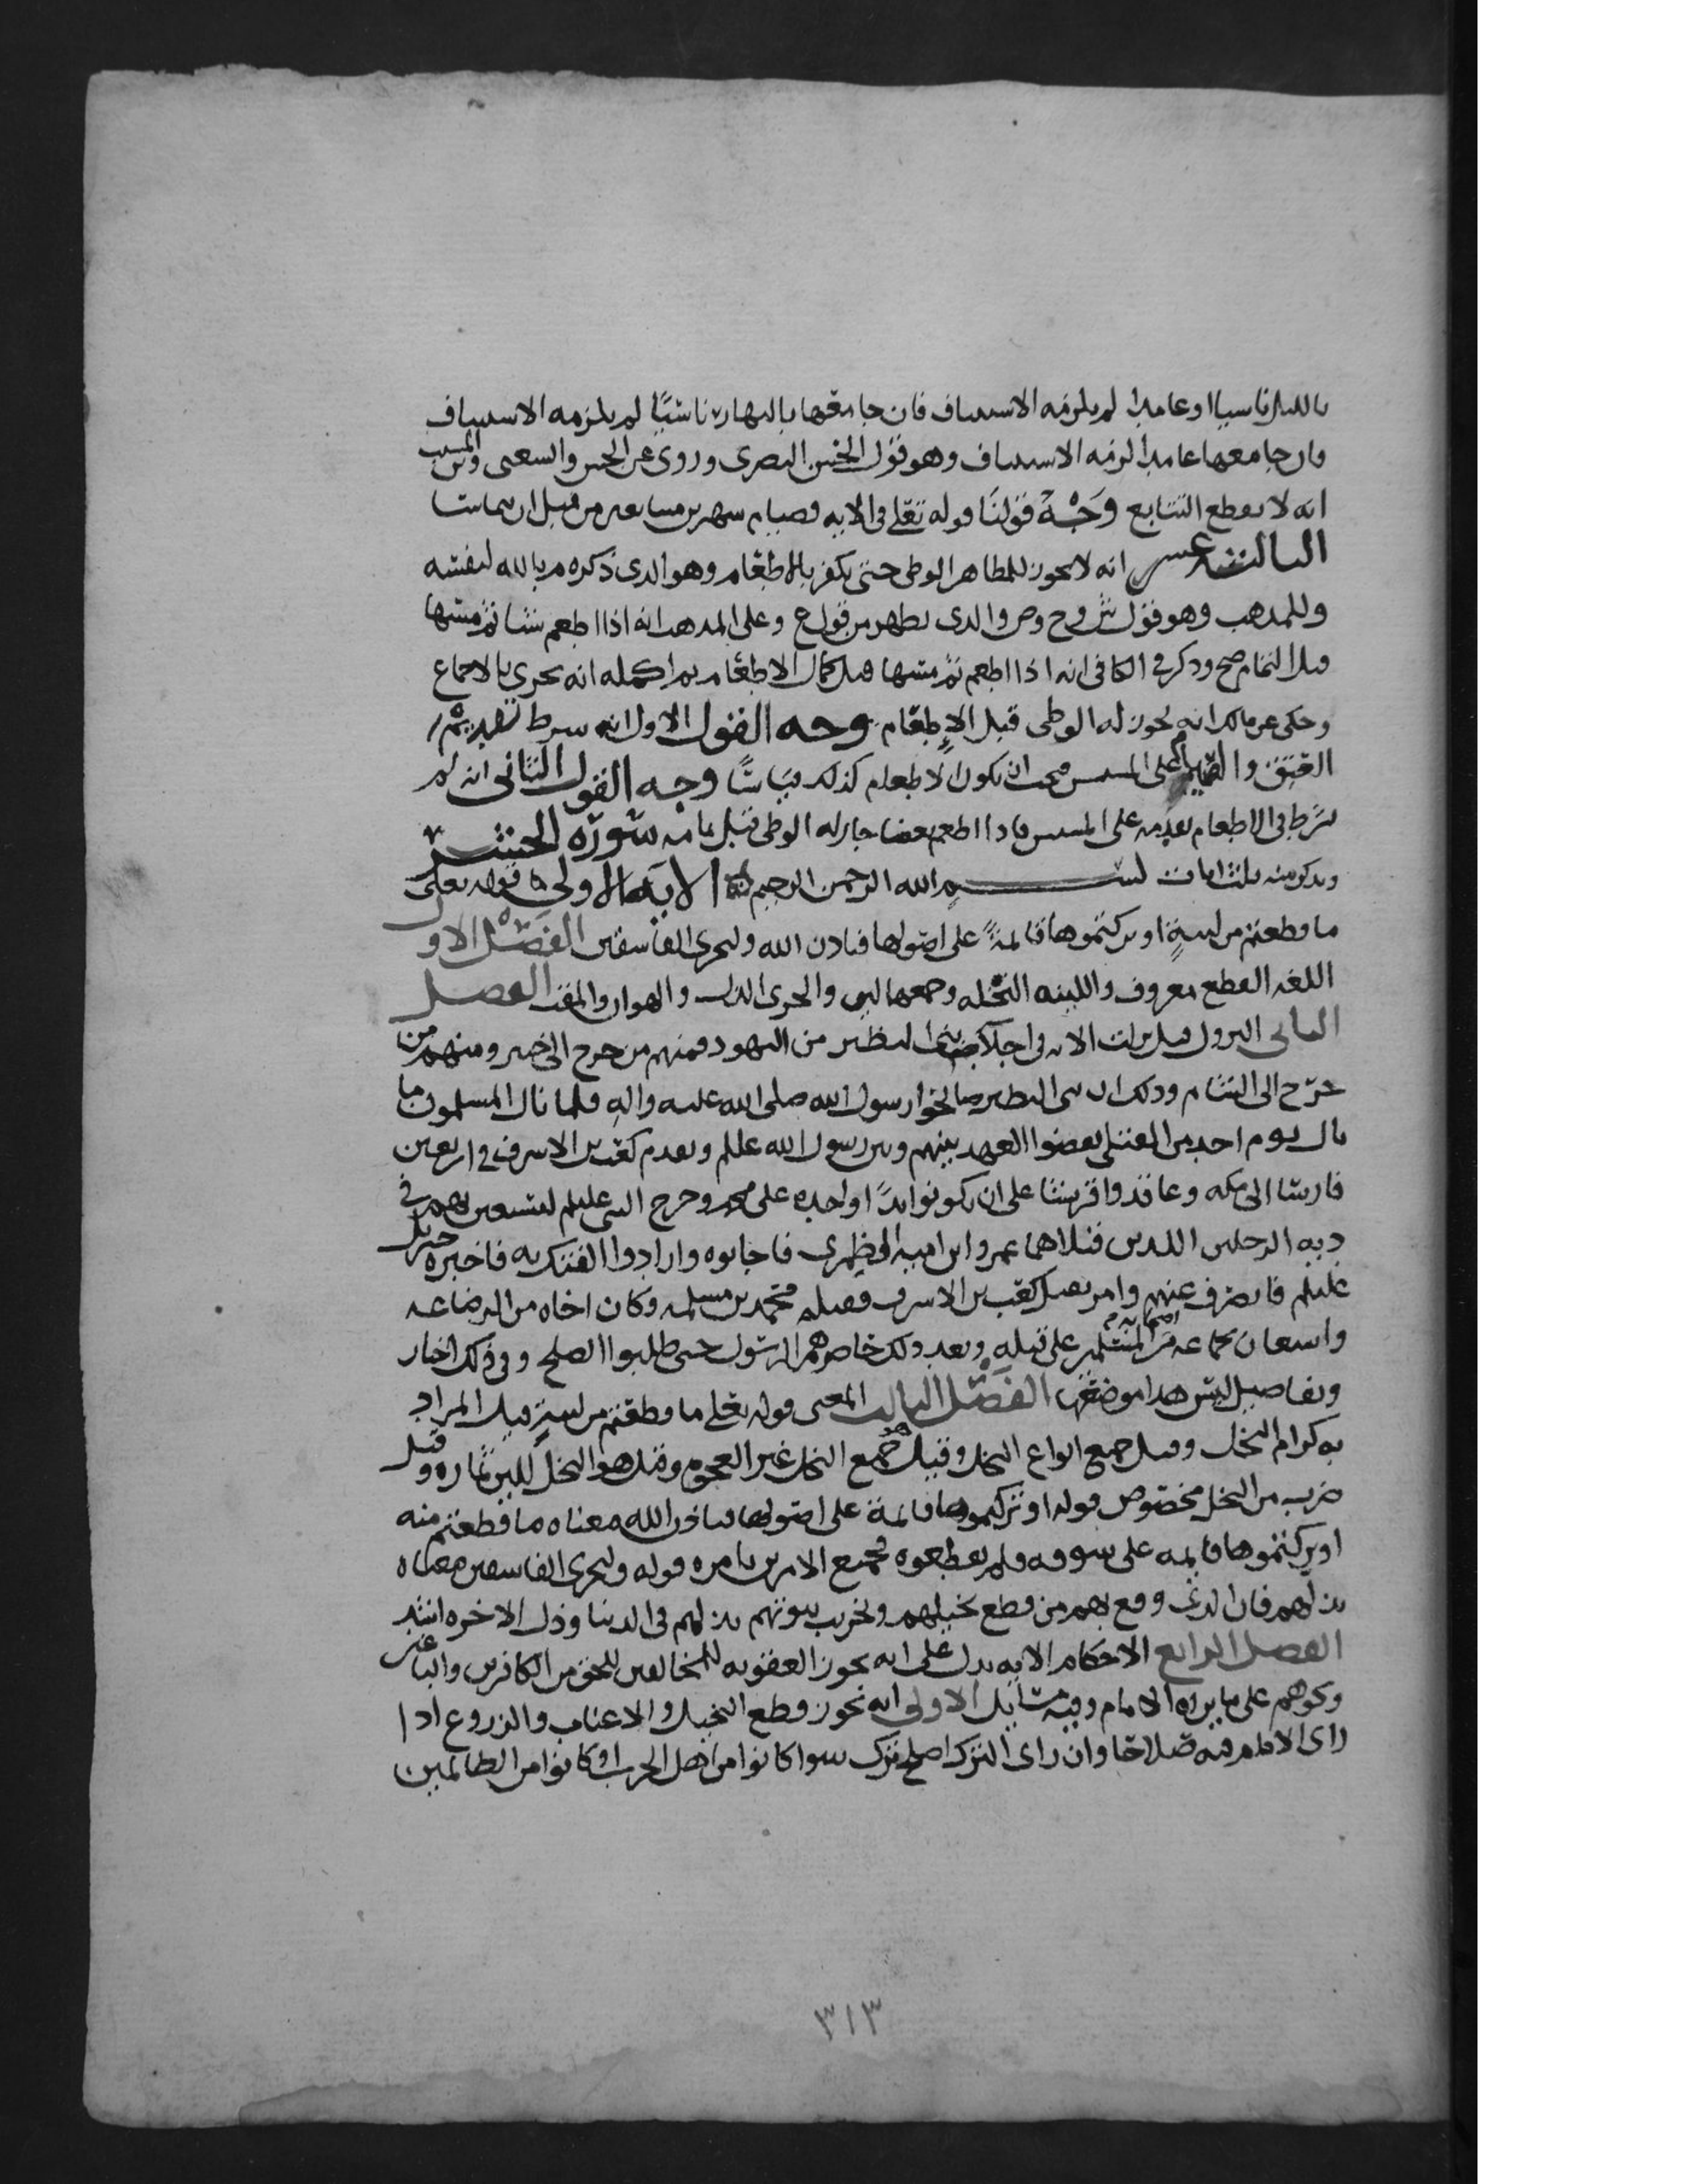 بالليل ناسيا او عامدا لم يلزمه الاستيناف فان جامعها بالنهار ناسيًا لم يلزمه الاستيناف
وان جامعها عامدا لزمه الاستيناف وهو قول الحسن البصرى وروى عن الحسن والشعبى وابن المسيب
انه لا يقطع التتابع وَجْهُ قولنا قوله تعلى فى الايه فصيام شهرين متتابعين من قبل ان يتماسا
الثالثه عشر انه لا يجوز للمظاهر الوطى حتى يكفر بالاطعام وهو الذى ذكره م بالله لنفسه
وللمذهب وهو قول ش وح وص والذى يظهر من قول ع وعلى المذهب انه اذا اطعم شيا ثم مسها
قبل التمام صح وذكر فى الكافى انه اذا اطعم ثم مسها قبل كمال الاطعام ثم اكمله انه يجزى بالاجماع
وحكى عن مالك انه يجوز له الوطى قبل الاطعام وجه القول الاول انه شرط تقديم
العتق والصيام على المسيس فيجب ان يكون الاطعام كذلك قياسًا وجه القول الثانى انه لم
يشرط فى الاطعام تقديمه على المسيس فاذا اطعم بعضا جاز له الوطى قبل تمامه سورة الحشر
ويذكر منه ثلث ايات بسم الله الرحمن الرحيم الايه الاولى قوله تعلى
ما قطعتم من لينةٍ او تركتموها قائمةً على اصولها فباذن الله وليخزى الفاسقين الفصل الاول
اللغه القطع معروف واللينه النخله وجمعها لين والخزى الذل والهوان والمقت الفصل
الثانى النزول قيل نزلت الايه فى اجلا بنى النظير من اليهود فمنهم من خرج الى خيبر ومنهم من
خرج الى الشام وذلك ان بنى النظير صالحوا رسول الله صلى الله عليه واله فلما نال المسلمون ما
نال يوم احد من القتلى نقضوا العهد بينهم وبين رسول الله عللم وتقدم كعب بن الاشرف فى اربعين
فارسا الى مكه وعاقدوا قريشا على ان يكونوا يدًا واحده على محمد وخرج النبى عليلم ليستعين بهم فى
ديه الرجلين اللذين قتلاهما عمرو ابن اميه الضمرى فاجابوه وارادوا الفتك به فاخبره جبريل
عليلم فانصرف عنهم وامر بقتل كعب بن الاشرف فقتله محمد بن مسلمه وكان اخاه من الرضاعه
واستعان بجماعه من المسلمين على قتله وبعد ذلك حاصرهم الرسول حتى طلبوا الصلح وفى ذلك اخبار
وتفاصيل ليس هذا موضعها الفصل الثالث المعنى قوله تعلى ما قطعتم من لينةٍ قيل المراد
به كرام النخل وقيل جميع انواع النخل وقيل جميع النخل غير العجوه وقيل هو النخل للين ثماره وقيل
ضرب من النخل مخصوص قوله او تركتموها قائمة على اصولها فباذن الله معناه ما قطعتم منه
او تركتموها قائمه على سوقه فلم يقطعوه فجميع الامرين بامره قوله وليخزى الفاسقين معناه
يذلهم فان الذى وقع بهم من قطع نخيلهم وتخريب بيوتهم يذلهم فى الدنيا وذل الاخره اشد
الفصل الرابع الاحكام الايه تدل على انه يجوز العقوبه للمخالفين للحق من الكافرين والباغين
ونحوهم على ما يراه الامام وفيه مسايل الاولى انه يجوز قطع النخيل والاعناب والزروع اذا
راى الامام فيه صلاحا وان راى الترك اصلح ترك سوا كانوا من اهل الحرب او كانوا من الظالمين
٣١٣